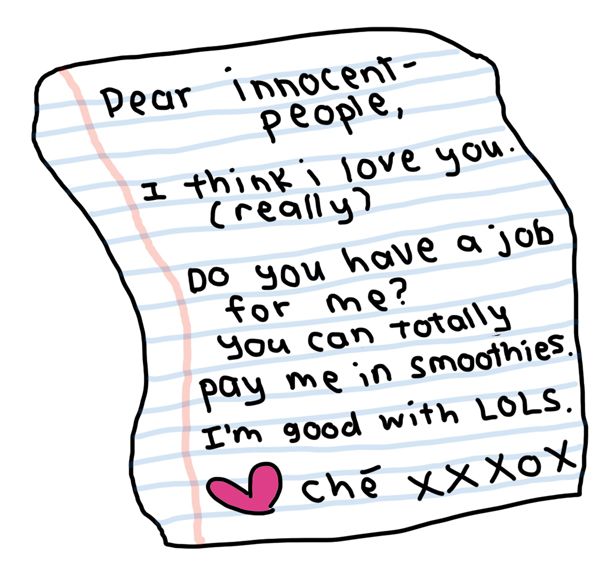 Dear innocent-
people,
I think i love you.
(really)
Do you have a job
for me?
you can totally
pay me in smoothies.
I'm good with LOLS.
Ché XXXOX